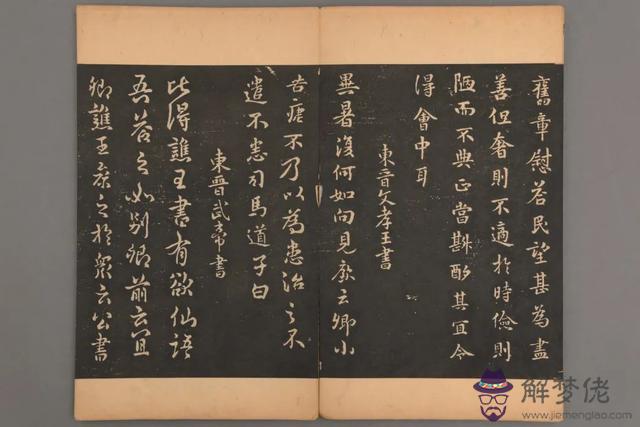 舊章慰若民望甚為盡
善但奢則不適於時儉則
陋而不典正當斟酌其宜令
得會中耳
東晉文孝王書
異暑復何如向見云卿小
苦不乃以為患治之不
遣不恚司馬道子白
東晉武帝書
此得譙王書有欲仙語
吾答之如別卿前云宜
卿譙王之於衆云公書
解梦佬
https://www.jiemenglao.com/